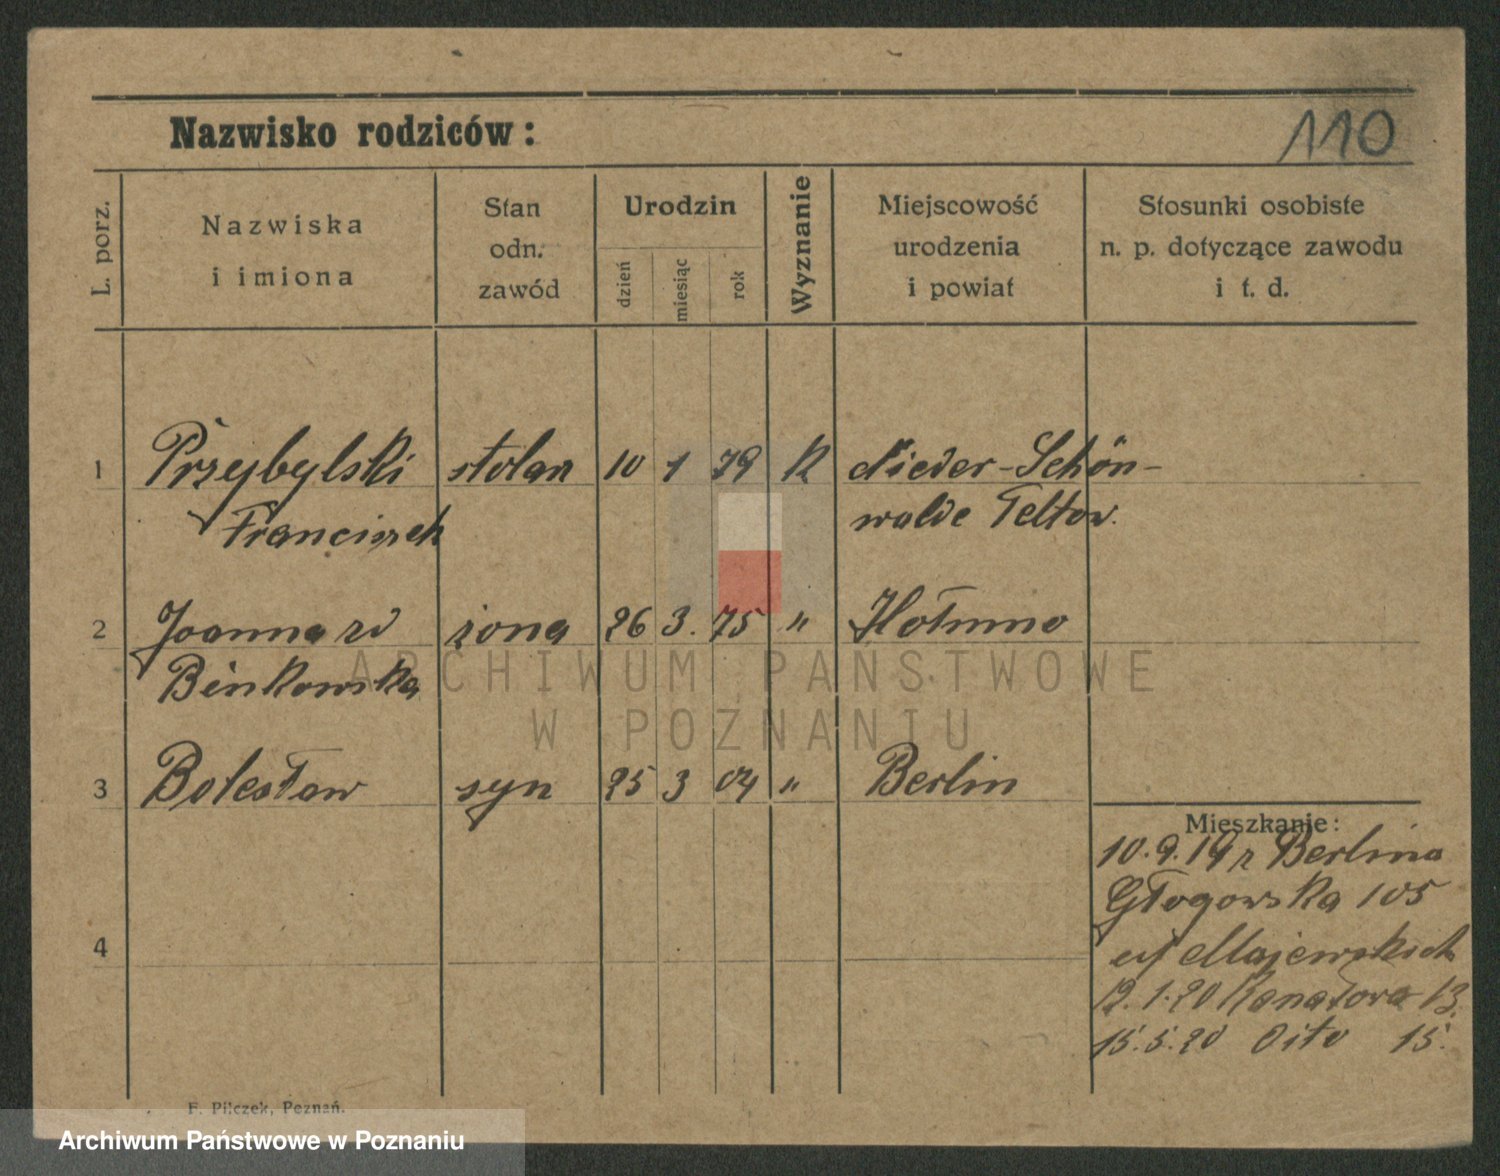 110
Nazwisko rodziców:
L. porz.
Nazwiska
i imiona
Stan
odn.
zawód
Urodzin
dzień
miesiąc
rok
Wyznanie
Miejscowość
urodzenia
i powiat
Stosunki osobiste
n. p. dotyczące zawodu
i t. d.
1 Przybylski stolarz 10 1 79 K Nieder-Schön-
Franciszek walde Teltow.
2 Joanna zd żona 26 3. 75 " 
Binkowska
3 Bolesław syn 25 3 04 " Berlin
Mieszkanie:
10.9.19 z Berlina
Głogowska 105
Majewskich
12.1.20 Kanałowa 13.
15.5.20 15.
4
F. Pilczek, Poznań.
ARCHIWUM PAŃSTWOWE
W POZNANIU
Archiwum Państwowe w Poznaniu